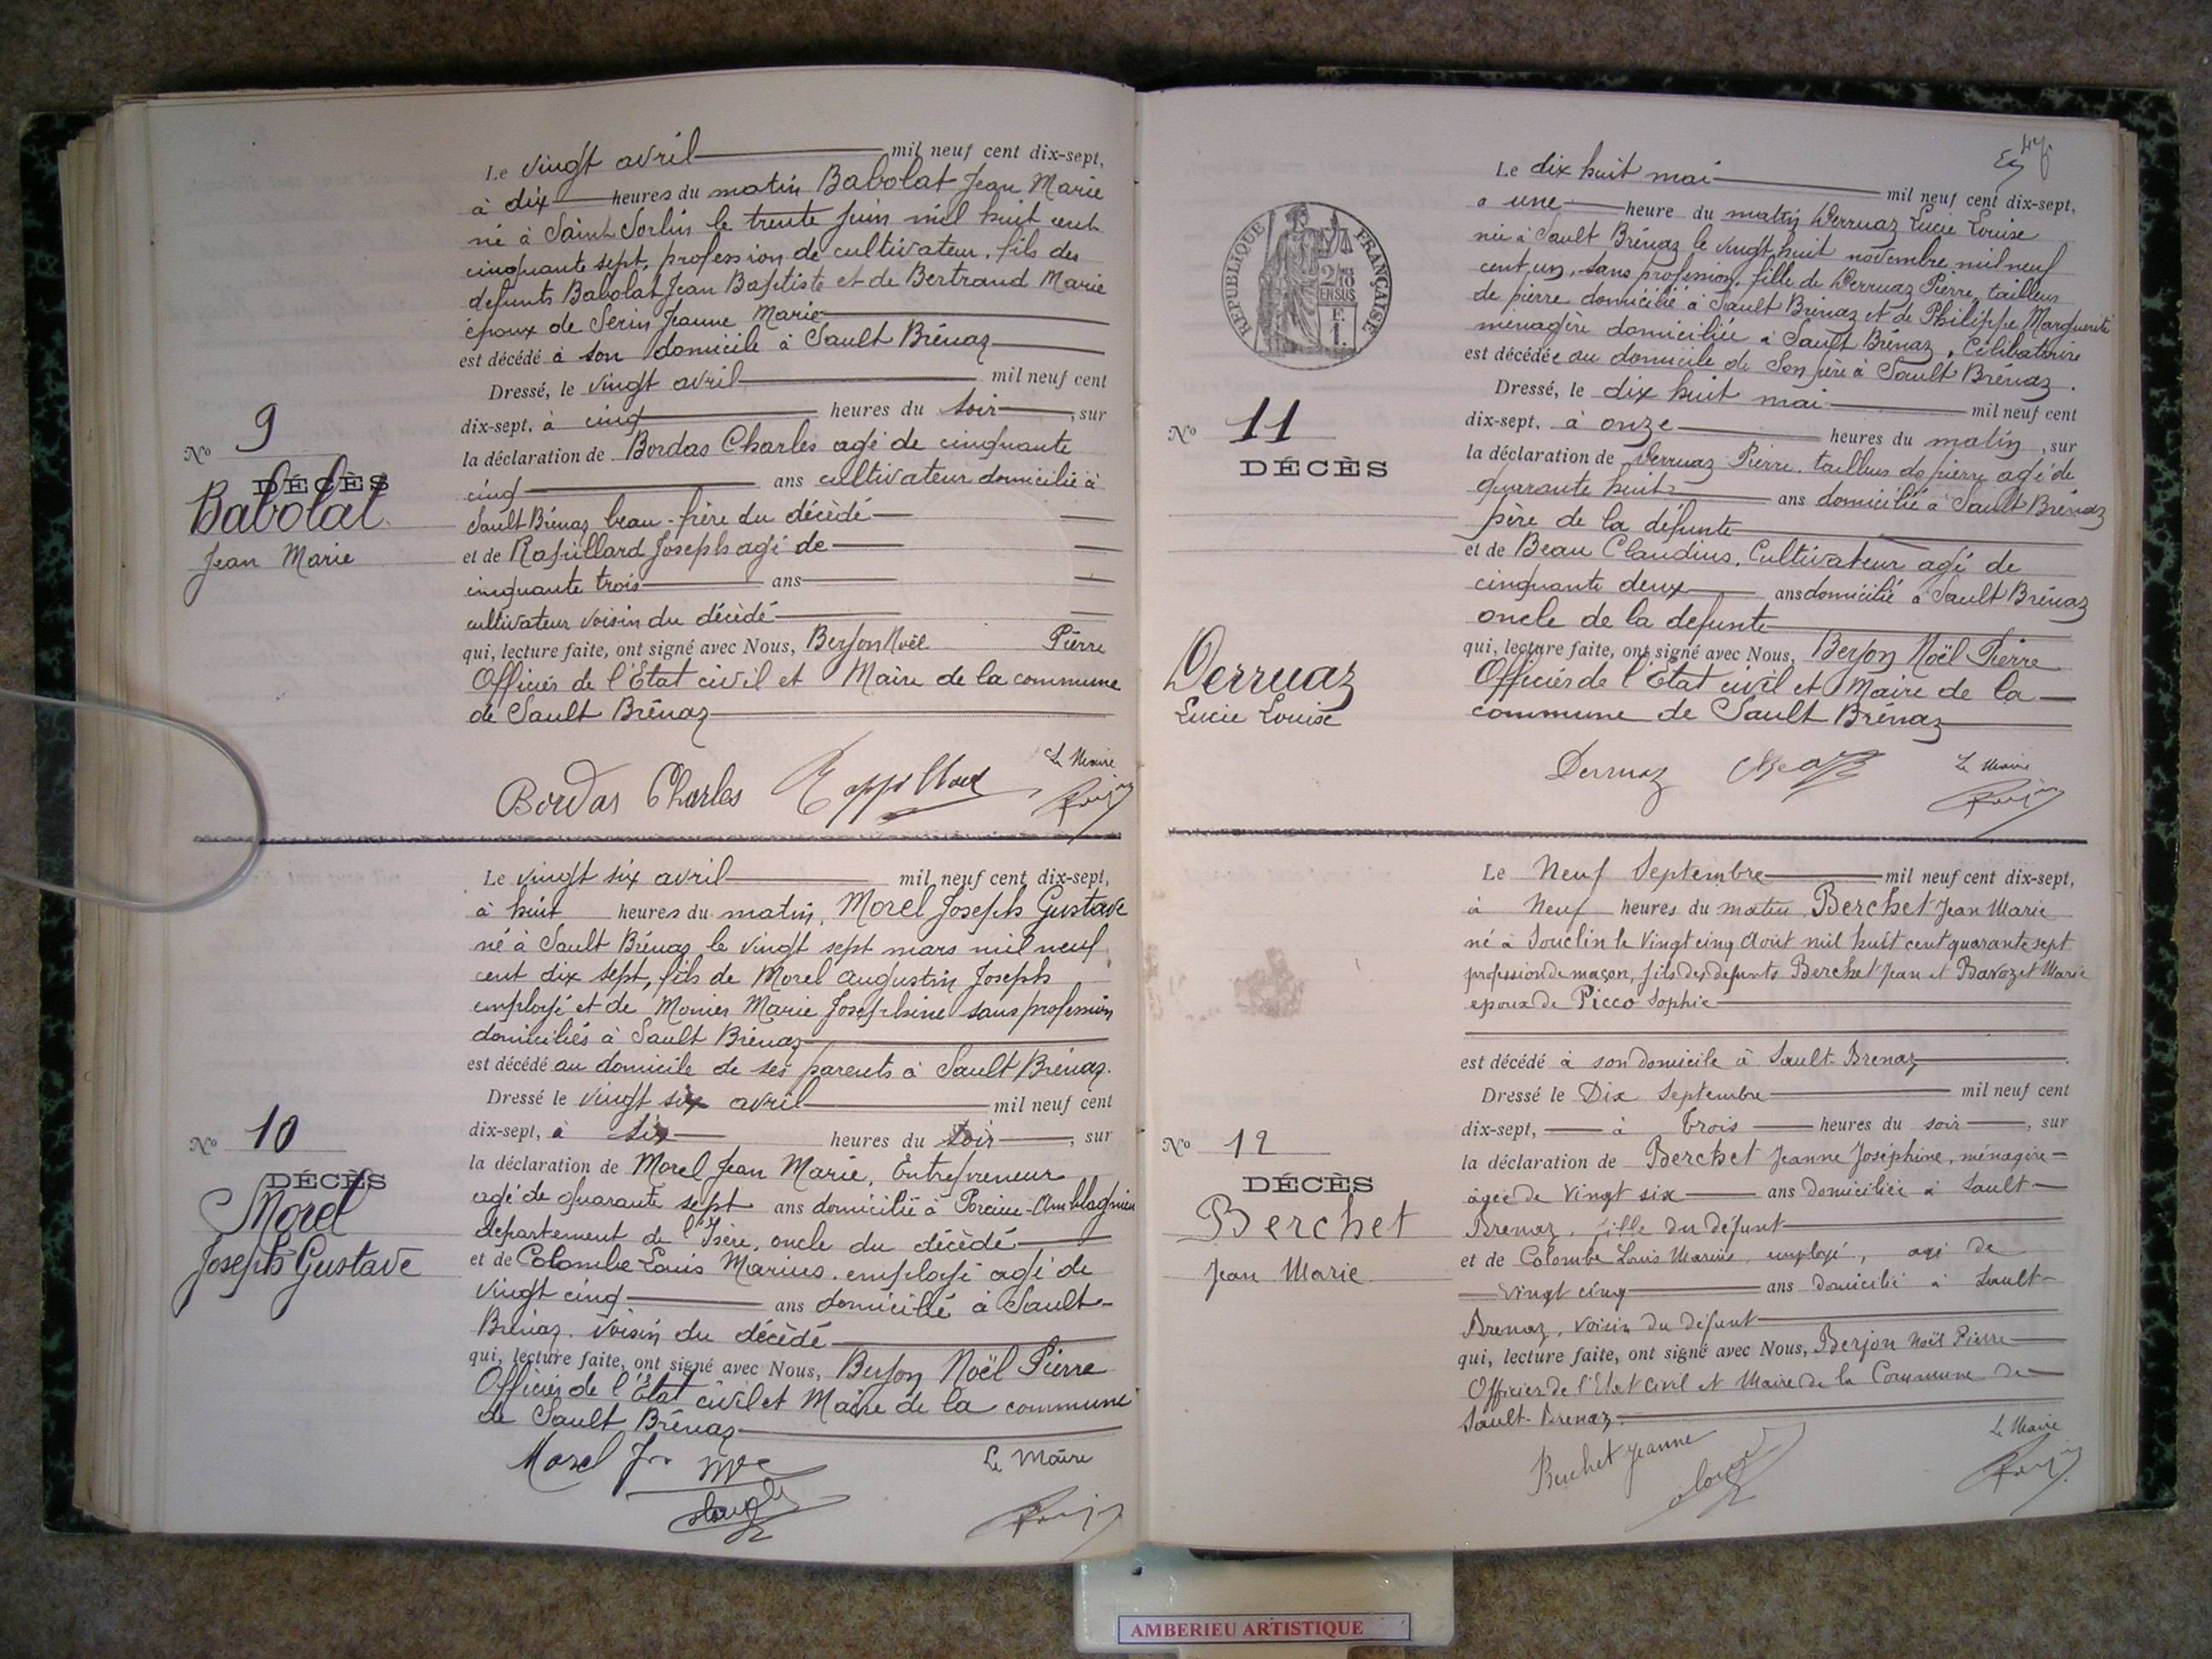 Le vingt avril mil neuf cent dix-sept,
à dix heures du matin Babolat Jean Marie
né à Saint Sorlin le trente juin mil huit cent
cinquante sept, profession de cultivateur, fils des
defunts Babolat Jean Baptiste et de Bertrand Marie
époux de Serin Jeanne Marie
est décédé à son domicile à Sault Brénaz
Dressé, le vingt avril mil neuf cent
dix-sept, à cinq heures du soir, sur
la déclaration de Bordas Charles agé de cinquante
cinq ans cultivateur domicilié à
Sault Brénaz beau-frère du décédé
et de Rapillard Joseph agé de
cinquante trois ans
cultivateur voisin du décédé
qui, lecture faite, ont signé avec Nous, Berjon Noël Pierre
Officier de l'Etat civil et Maire de la commune
de Sault Brénaz
No 9
DÉCÈS
Babolat
Jean Marie
Bordas Charles
Le Maire
Le vingt six avril mil neuf cent dix-sept,
à huit heures du matin, Morel Joseph Gustave
né à Sault Brénaz le vingt sept mars mil neuf
cent dix sept, fils de Morel Augustin Joseph
employé et de Monier Marie Joséphine sans profession
domiciliés à Sault Brénaz
est décédé au domicile de ses parents à Sault Brénaz.
Dressé le vingt six avril mil neuf cent
dix-sept, à six heures du soir, sur
la déclaration de Morel Jean Marie, Entrepreneur
agé de quarante sept ans domicilié à Porcieu-Amblagnieu
département de l'Isère, oncle du décédé
et de Colombe Louis Marius. employé agé de
vingt cinq ans domicilié à Sault-
Brénaz. voisin du décédé
qui, lecture faite, ont signé avec Nous, Berjon Noël Pierre
Officier de l'Etat civil et Maire de la commune
de Sault Brénaz
No 10
DÉCÈS
Morel
Joseph Gustave
Morel
Le Maire
Le dix huit mai mil neuf cent dix-sept,
à une heure du matin Derruaz Lucie Louise
née à Sault Brénaz le vingt huit novembre mil neuf
cent un, sans profession, fille de Derruaz Pierre, tailleur
de pierre domicilié à Sault Brénaz et de Philippe Marguerite
ménagère domiciliée à Sault Brénaz, Célibataire
est décédée au domicile de Son père à Sault Brénaz.
Dressé, le dix huit mai mil neuf cent
dix-sept, à onze heures du matin, sur
la déclaration de Derruaz Pierre. tailleur de pierre agé de
quarante huit ans domicilié à Sault Brénaz
père de la défunte
et de Beau Claudius, Cultivateur agé de
cinquante deux ans domicilié à Sault Brénaz
oncle de la defunte
qui, lecture faite, ont signé avec Nous, Berjon Noël Pierre
Officier de l'Etat civil et Maire de la
commune de Sault Brénaz
REPUBLIQUE FRANÇAISE
No 11
DÉCÈS
Derruaz
Lucie Louise
Derruaz
Le Maire
Le Neuf Septembre mil neuf cent dix-sept,
à Neuf heures du matin, Berchet Jean Marie
né à Souclin le Vingt cinq Aout mil huit cent quarante sept
profession de maçon, fils des defunts Berchet Jean et Bavozet Marie
epoux de Picco Sophie
est décédé à son domicile à Sault-Brenaz
Dressé le Dix Septembre mil neuf cent
dix-sept, à trois heures du soir, sur
la déclaration de Berchet Jeanne Joséphine, ménagère
âgée de Vingt six ans domiciliée à Sault
Brenaz, fille du défunt
et de Colombe Louis Marius employé, agé de
Vingt cinq ans domicilié à Sault-
Brenaz, voisin du défunt
qui, lecture faite, ont signé avec Nous, Berjon Noël Pierre
Officier de l'Etat Civil et Maire de la Commune de
Sault-Brenaz.
No 12
DÉCÈS
Berchet
Jean Marie
Berchet Jeanne
Le Maire
AMBERIEU ARTISTIQUE